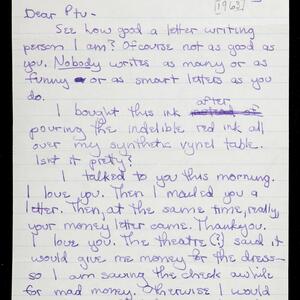 [1962]
Dear Ptu-
See how good a letter writing
person I am? Ofcourse not as good as
you. Nobody writes as many or as
funny or as smart letters as you
do.
I bought this ink after
pouring the indelible red ink all
over my synthetic vynel table.
Isnt it pretty?
I talked to you this morning.
I love you. Then I mailed you a
letter. Then, at the same time, really,
your money letter came. Thankyou.
I love you. The theatre (?) said it
would give me money for the dress-
so I am saving the check awhile
for mad money. Otherwise I would